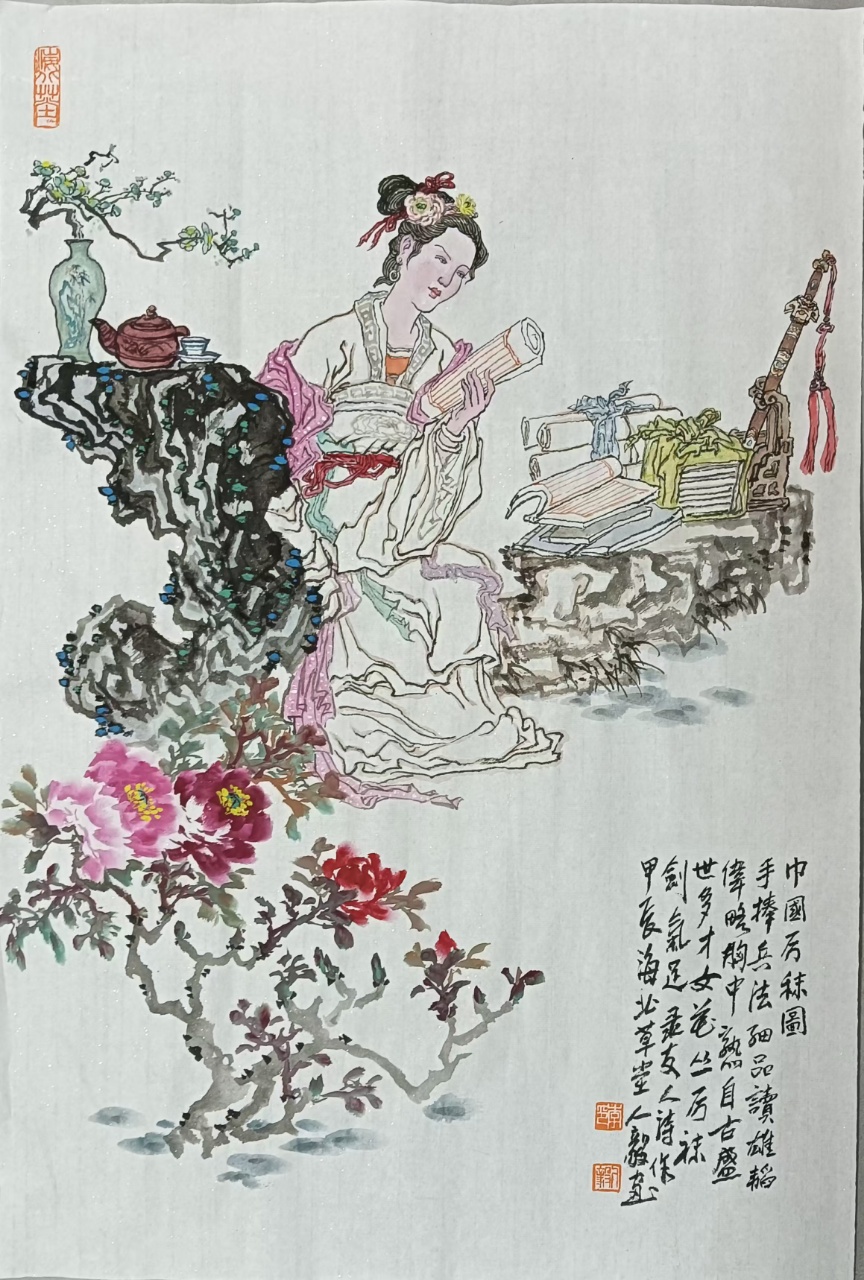 巾國厉秣圖
手捧兵法細品讀雄韜
偉略胸中熟自古盛
世多才女花丛厉秣
劍氣足录友人诗保
甲辰海北草堂人毅画